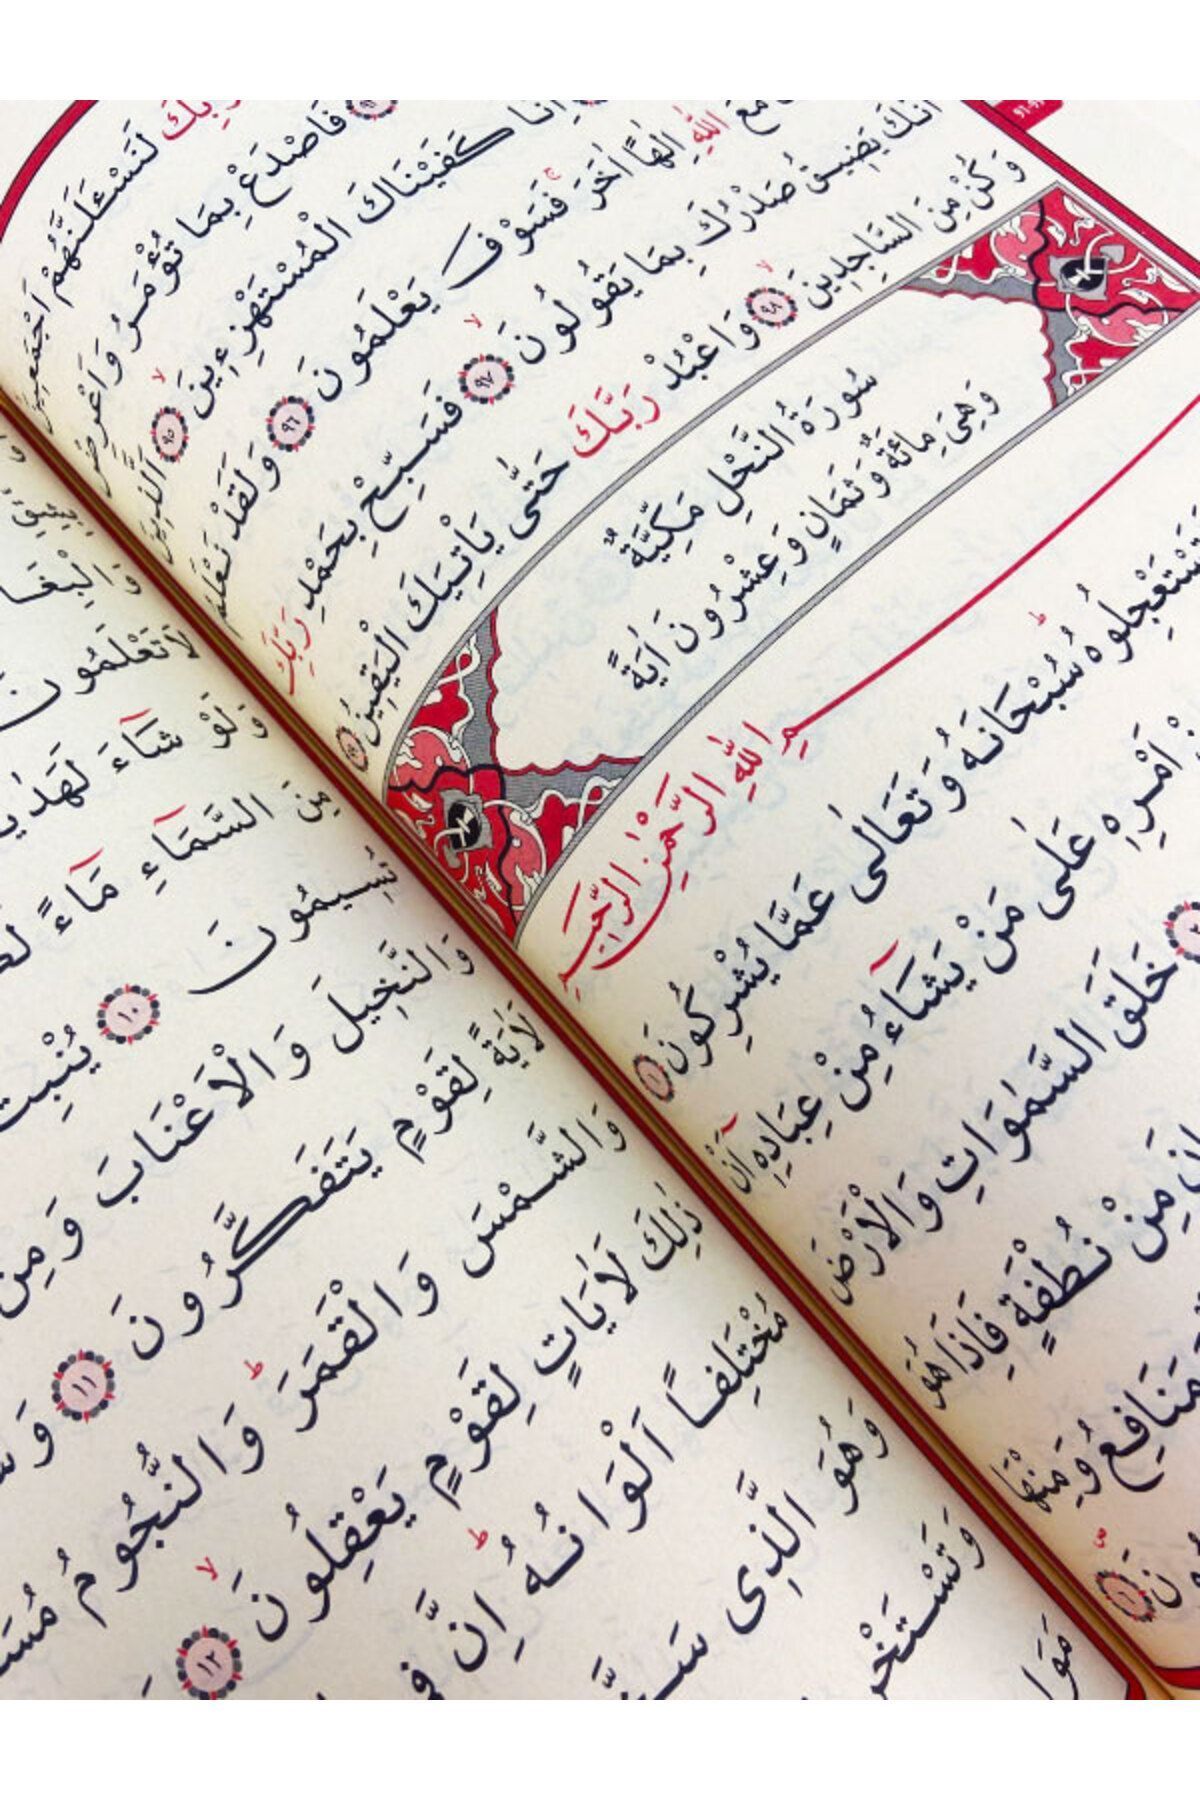 رَبِّكَ لَنَسْـَٔلَنَّهُمْ اَجْمَعِينَ
فَاصْدَعْ بِمَا تُؤْمَرُ وَاَعْرِضْ
اِنَّا كَفَيْنَاكَ الْمُسْتَهْزِءِينَ ٩٥ اَلَّذِينَ
مَعَ اللّٰهِ اِلٰهًا اٰخَرَ فَسَوْفَ يَعْلَمُونَ ٩٦ وَلَقَدْ نَعْلَمُ
اَنَّكَ يَضِيقُ صَدْرُكَ بِمَا يَقُولُونَ ٩٧ فَسَبِّحْ بِحَمْدِ رَبِّكَ
وَكُنْ مِنَ السَّاجِدِينَ ٩٨ وَاعْبُدْ رَبَّكَ حَتّٰى يَاْتِيَكَ الْيَقِينُ ٩٩
سُورَةُ النَّحْلِ مَكِّيَّةٌ
وَهِىَ مِائَةٌ وَثَمَانٍ وَعِشْرُونَ اٰيَةً
بِسْمِ اللّٰهِ الرَّحْمٰنِ الرَّحِيمِ
تَسْتَعْجِلُوهُ سُبْحَانَهُ وَتَعَالٰى عَمَّا يُشْرِكُونَ ١
اَمْرِهِ عَلٰى مَنْ يَشَاءُ مِنْ عِبَادِهِ اَنْ
٢ خَلَقَ السَّمٰوَاتِ وَالْاَرْضَ
مِنْ نُطْفَةٍ فَاِذَا هُوَ
وَمَنَافِعُ وَمِنْهَا
وَالْبِغَا
لَا تَعْلَمُونَ
وَلَوْ شَاءَ لَهَدٰي
مِنَ السَّمَاءِ مَاءً
تُسِيمُونَ ١٠ يُنْبِتُ
وَالنَّخِيلَ وَالْاَعْنَابَ وَمِنْ
لَاٰيَةً لِقَوْمٍ يَتَفَكَّرُونَ ١١
وَالشَّمْسَ وَالْقَمَرَ وَالنُّجُومُ
ذٰلِكَ لَاٰيَاتٍ لِقَوْمٍ يَعْقِلُونَ ١٢
مُخْتَلِفًا اَلْوَانُهُ اِنَّ فِى
وَهُوَ الَّذِى
وَتَسْتَخْرِ